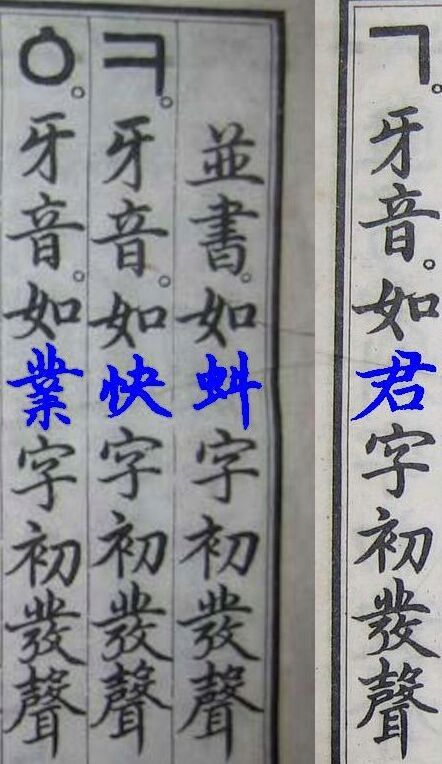 ㄱ。牙音。如君字初發聲
並書。如蚪字初發聲
ㅋ。牙音。如快字初發聲
ㆁ。牙音。如業字初發聲